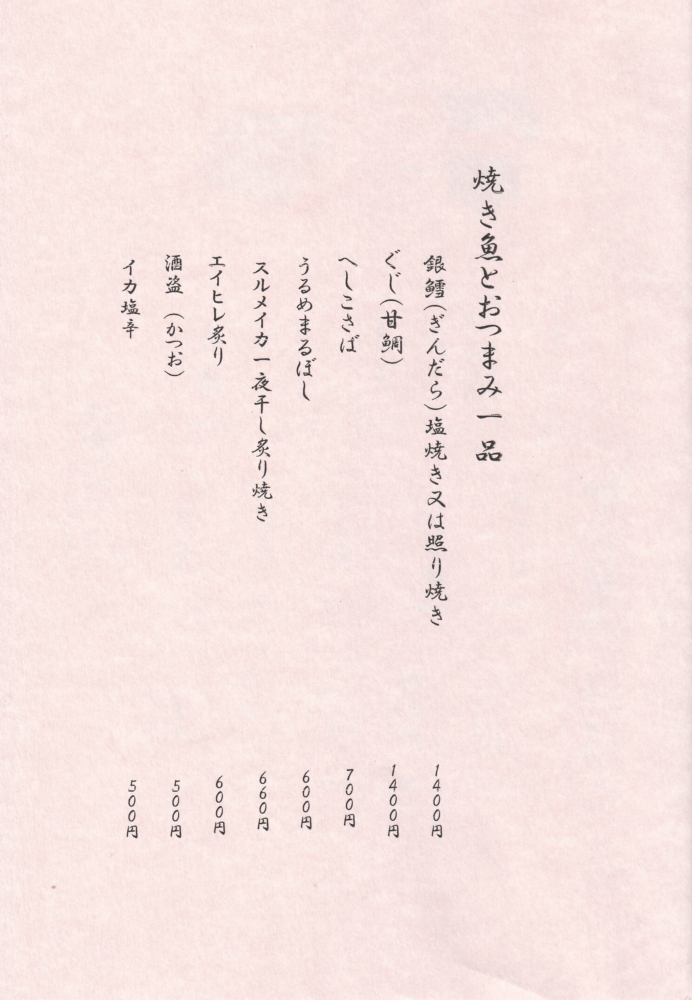 焼き魚とおつまみ一品
銀鱈(ぎんだら)塩焼き又は照り焼き 1400円
ぐじ(甘鯛) 1400円
へしこさば 700円
うるめまるぼし 600円
スルメイカ一夜干し炙り焼き 660円
エイヒレ炙り 600円
酒盗 (かつお) 500円
イカ塩辛 500円